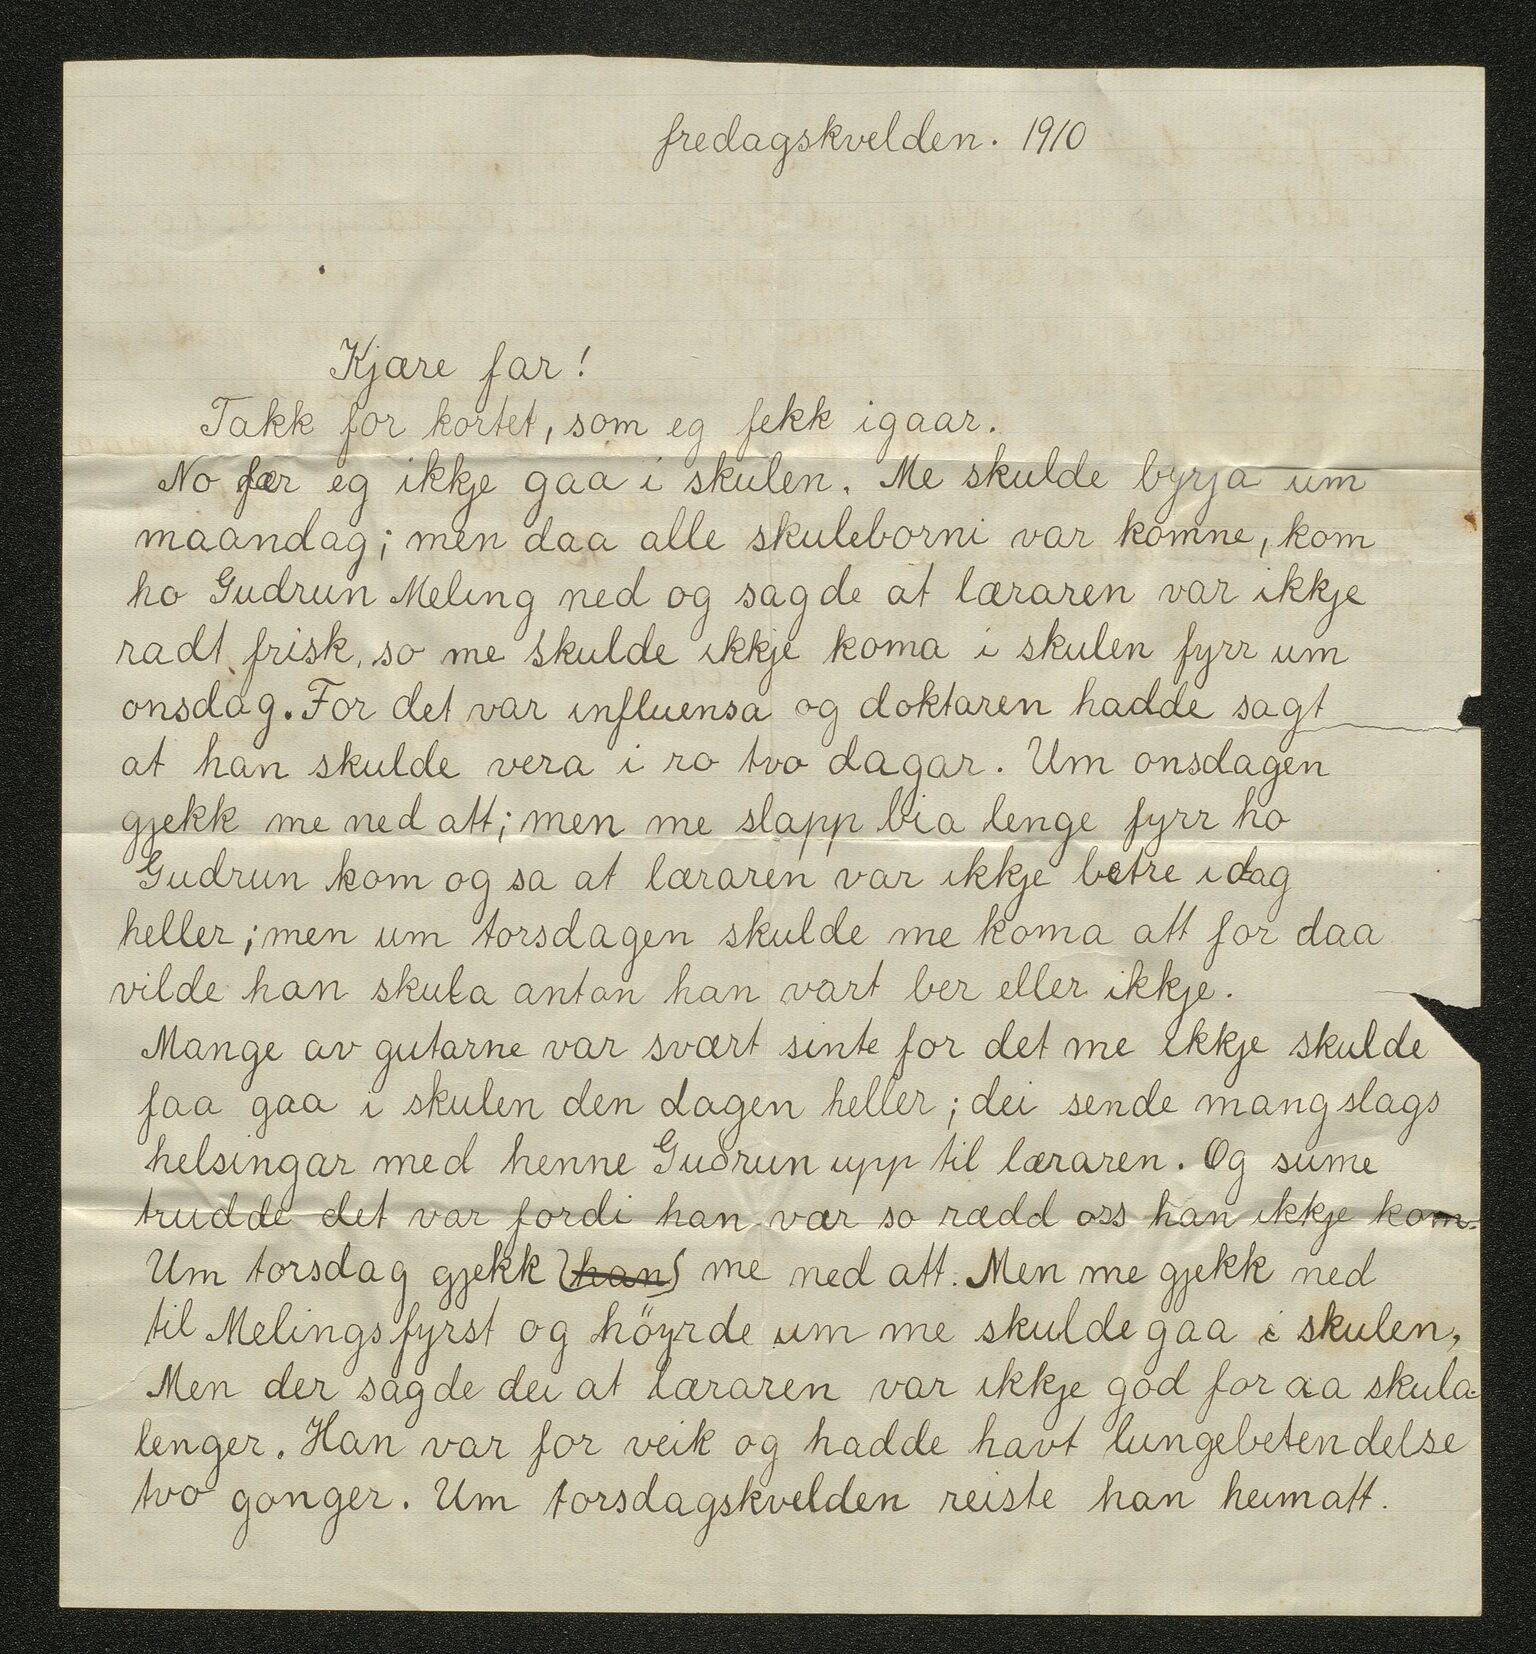 fredagskvelden. 1910
Kjære far!
Takk for kortet, som eg fekk igaar.
No fær eg ikkje gaa i skulen. Me skulde byrja um
maandag; men daa alle skuleborni var komne, kom
ho Gudrun Meling ned og sagde at læraren var ikkje
radt frisk, so me skulde ikkje koma i skulen fyrr um
onsdag. For det var influensa og doktaren hadde sagt
at han skulde vera i ro tvo dagar. Um onsdagen
gjekk me ned att; men me slapp bia lenge fyrr ho
Gudrun kom og sa at læraren var ikkje betre idag
heller; men um torsdagen skulde me koma att for daa
vilde han skula anton han vart ber eller ikkje.
Mange av gutarne var svært sinte for det me ikkje skulde
faa gaa i skulen den dagen heller; dei sende mangslags
helsingar med henne Gudrun upp til læraren. Og sume
trudde det var fordi han var so rædd oss han ikkje kom.
Um torsdag gjekk (han) me ned att. Men me gjekk ned
til Melings fyrst og höyrde um me skulde gaa i skulen,
Men der sagde dei at læraren var ikkje god for aa skula
lenger. Han var for veik og hadde havt lungebetendelse
tvo gonger. Um torsdagskvelden reiste han heimatt.